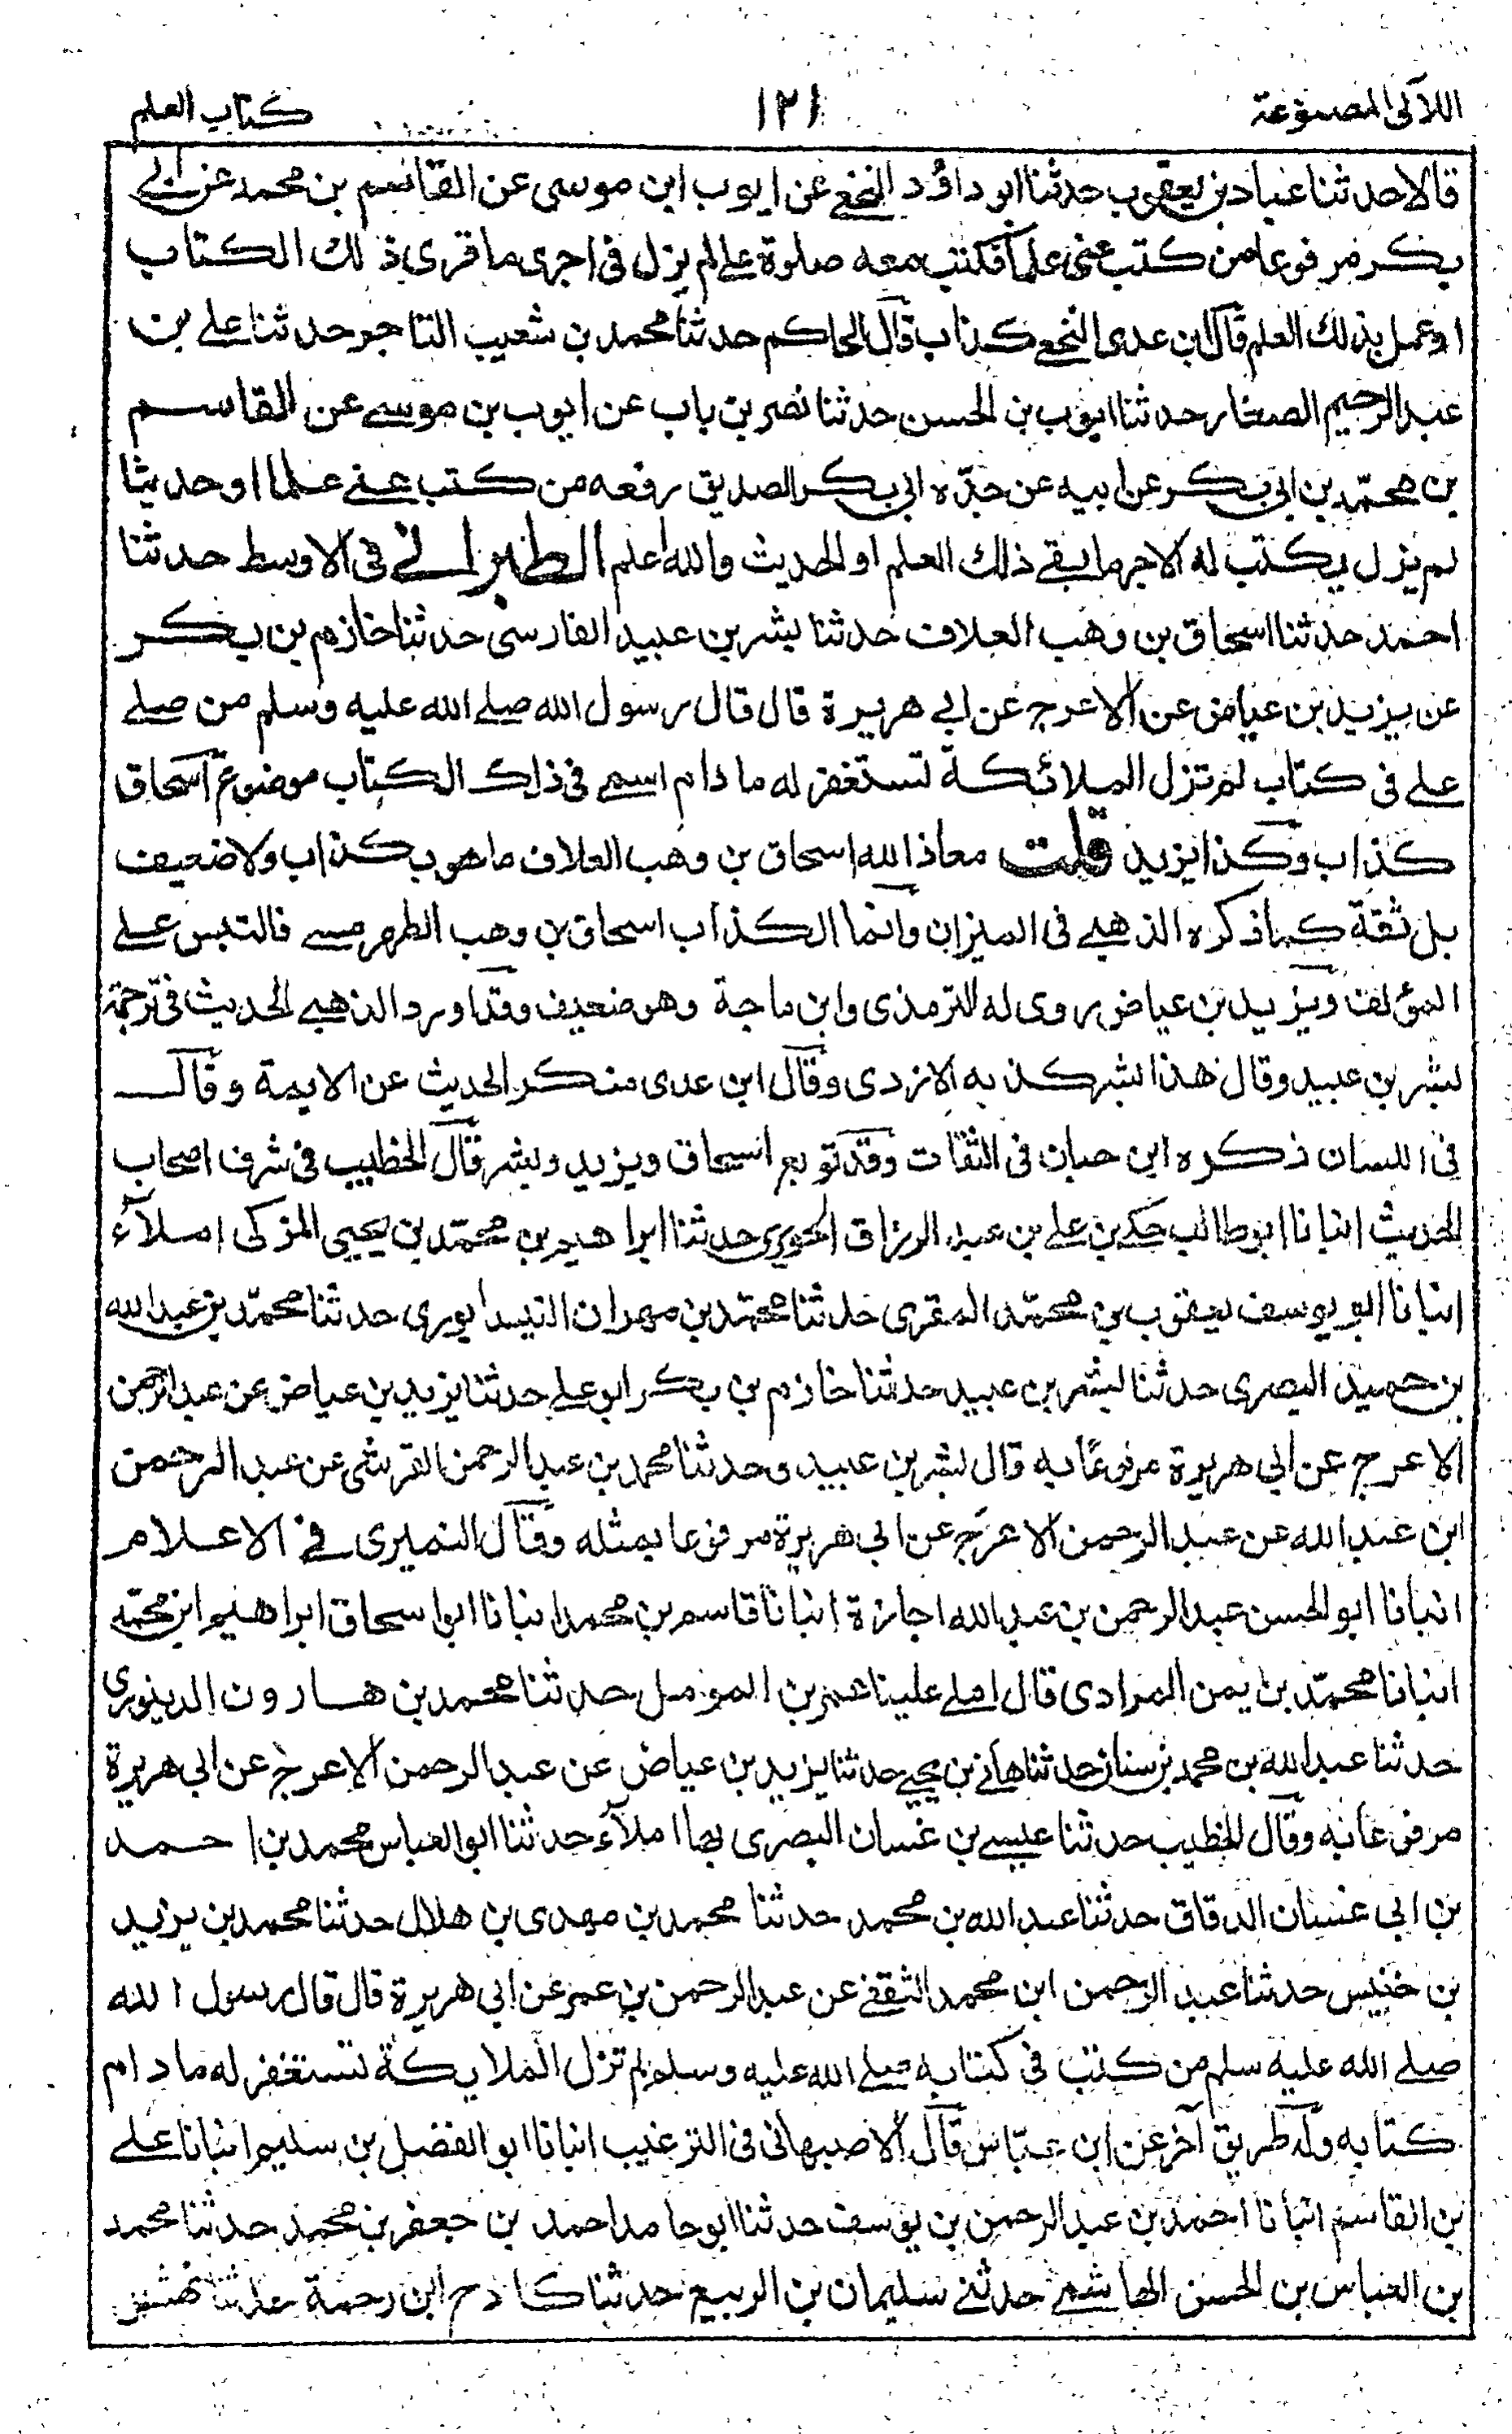 اللآلى المصنوعة ١٢١ كتاب العلم
قالا حدثنا عباد بن يعقوب حدثنا ابو داؤد النخعي عن ايوب ابن موسى عن القاسم بن محمد عن ابي
بكر مرفوعا من كتب عني علما فكتب معه صلوة علي لم يزل في اجرى ما قرى ذلك الكتاب
او عمل بذلك العلم قال ابن عدى النخعي كذاب قال الحاكم حدثنا محمد بن شعيب التاجر حدثنا علي بن
عبد الرحيم الصفار حدثنا ايوب بن الحسن حدثنا نصر بن باب عن ايوب بن موسى عن القاسم
بن محمد بن ابي بكر عن ابيه عن جده ابي بكر الصديق رفعه من كتب عني علما او حديثا
لم يزل يكتب له الاجر ما بقي ذلك العلم او الحديث والله اعلم الطبراني في الاوسط حدثنا
احمد حدثنا اسحاق بن وهب العلاف حدثنا بشر بن عبيد الفارسى حدثنا خازم بن بكر
عن يزيد بن عياض عن الاعرج عن ابي هريرة قال قال رسول الله صلى الله عليه وسلم من صلى
علي في كتاب لم تزل الملائكة تستغفر له ما دام اسمي في ذلك الكتاب موضوع اسحاق
كذاب وكذا يزيد قلت معاذ الله اسحاق بن وهب العلاف ما هو بكذاب ولا ضعيف
بل ثقة كما ذكره الذهبي في الميزان وانما الكذاب اسحاق بن وهب الطهرمسي فالتبس على
المؤلف ويزيد بن عياض روى له الترمذى وابن ماجة وهو ضعيف وقد اورد الذهبي الحديث في ترجمة
بشر بن عبيد وقال هذا بشر كذبه الازدى وقال ابن عدى منكر الحديث عن الايمة وقال
في اللسان ذكره ابن حبان في الثقات وقد توبع اسحاق ويزيد وبشر قال الخطيب في شرف اصحاب
الحديث انبانا ابو طالب مكي بن علي بن عبد الرزاق الحريرى حدثنا ابراهيم بن محمد بن يحيى المزكى املآء
انبانا ابو يوسف يعقوب بن محمد المقرى حدثنا محمد بن مهران النيسابورى حدثنا محمد بن عبد الله
بن حميد البصرى حدثنا بشر بن عبيد حدثنا خازم بن بكر ابو علي حدثنا يزيد بن عياض عن عبد الرحمن
الاعرج عن ابي هريرة مرفوعا به قال بشر بن عبيد وحدثنا محمد بن عبد الرحمن القرشى عن عبد الرحمن
ابن عبد الله عن عبد الرحمن الاعرج عن ابي هريرة مرفوعا بمثله وقال النميرى في الاعلام
انبانا ابو الحسن عبد الرحمن بن عبد الله اجازة انبانا قاسم بن محمد انبانا ابو اسحاق ابراهيم ابن محمد
انبانا محمد بن يمن المرادى قال املى علينا عمر بن المومل حدثنا محمد بن هارون الدينورى
حدثنا عبد الله بن محمد بن سنان حدثنا هانى بن يحيى حدثنا يزيد بن عياض عن عبد الرحمن الاعرج عن ابي هريرة
مرفوعا به وقال الخطيب حدثنا عيسى بن غسان البصرى بها املآء حدثنا ابو العباس محمد بن احمد
بن ابى غسان الدقاق حدثنا عبد الله بن محمد حدثنا محمد بن مهدى بن هلال حدثنا محمد بن يزيد
بن خنيس حدثنا عبد الرحمن ابن محمد الثقفي عن عبد الرحمن بن عمر عن ابي هريرة قال قال رسول الله
صلى الله عليه سلم من كتب في كتابه صلى الله عليه وسلم لم تزل الملايكة تستغفر له ما دام
كتابه وله طريق آخر عن ابن عباس قال الاصبهانى في الترغيب انبانا ابو الفضل بن سليم انبانا علي
بن القاسم انبانا احمد بن عبد الرحمن بن يوسف حدثنا ابو حامد احمد بن جعفر بن محمد حدثنا محمد
بن العباس بن الحسن الهاشمي حدثني سليمان بن الربيع حدثنا كادح ابن رحمة حدثنا نهشل